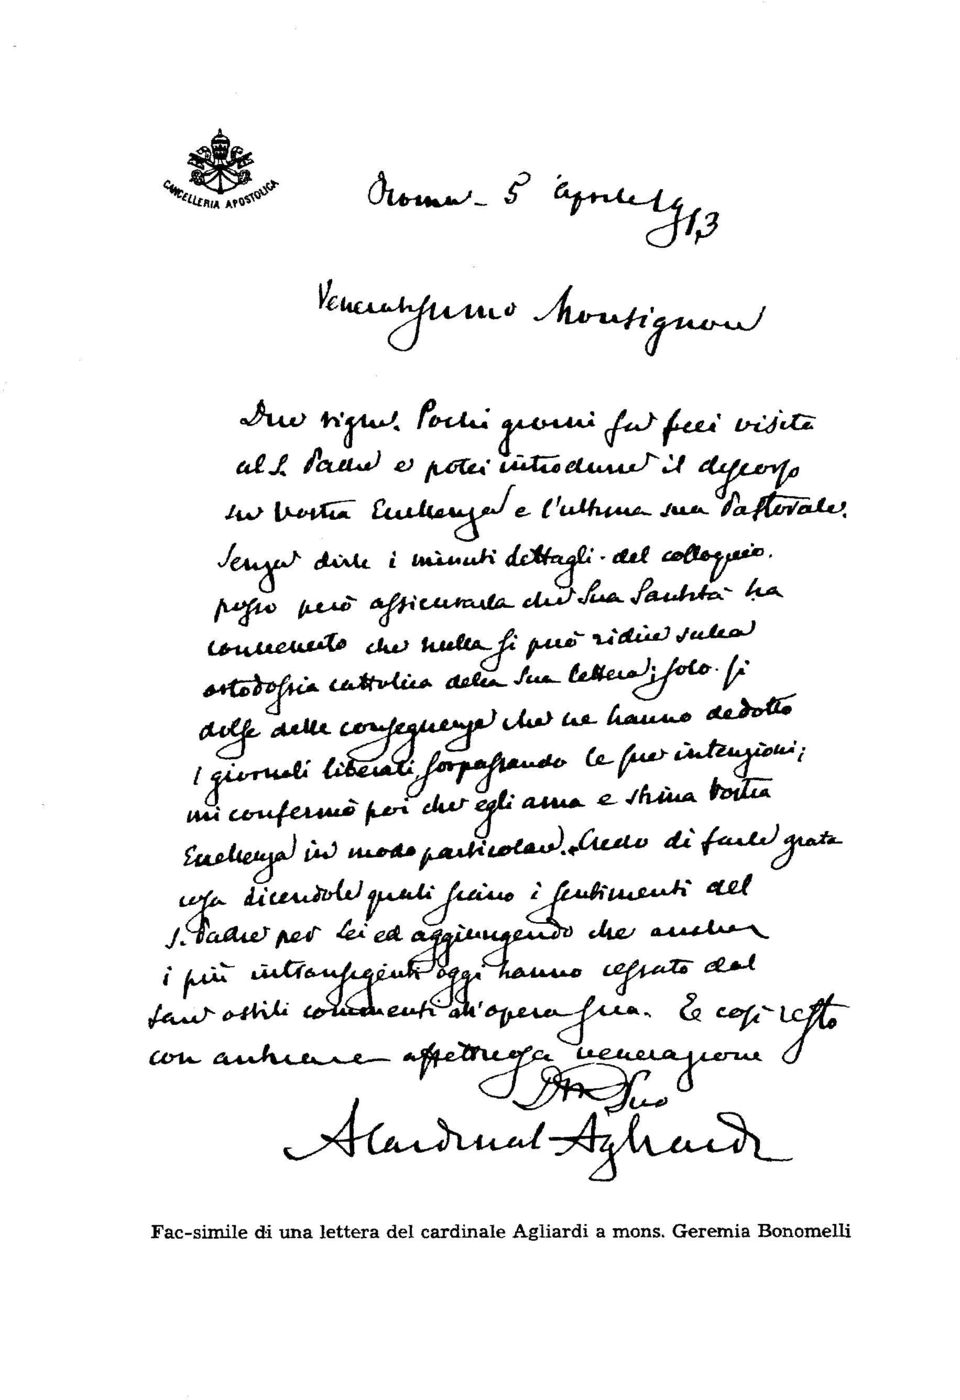 CANCELLERIA APOSTOLICA
Roma - 5 aprile 1913
Veneratissimo Monsignore
Due righe. Pochi giorni fa feci visita
al S. Padre e potei introdurre il discorso
su Vostra Eccellenza e l'ultima sua Pastorale.
Senza dirle i minuti dettagli del colloquio.
posso però assicurarla che Sua Santità ha
convenuto che nulla si può ridire sulla
ortodossia cattolica della Sua lettera; solo si
dolse delle conseguenze che ne hanno dedotto
i giornali liberali, sorpassando le sue intenzioni;
mi confermò poi che egli ama e stima Vostra
Eccellenza in modo particolare. Credo di farle grata
cosa dicendole quali siano i sentimenti del
S. Padre per Lei ed aggiungendo che anche
i più intransigenti oggi hanno cessato dal
fare ostili commenti all'opera sua. E così resto
con affettuosa venerazione
Suo
A Cardinal Agliardi
Fac-simile di una lettera del cardinale Agliardi a mons. Geremia Bonomelli